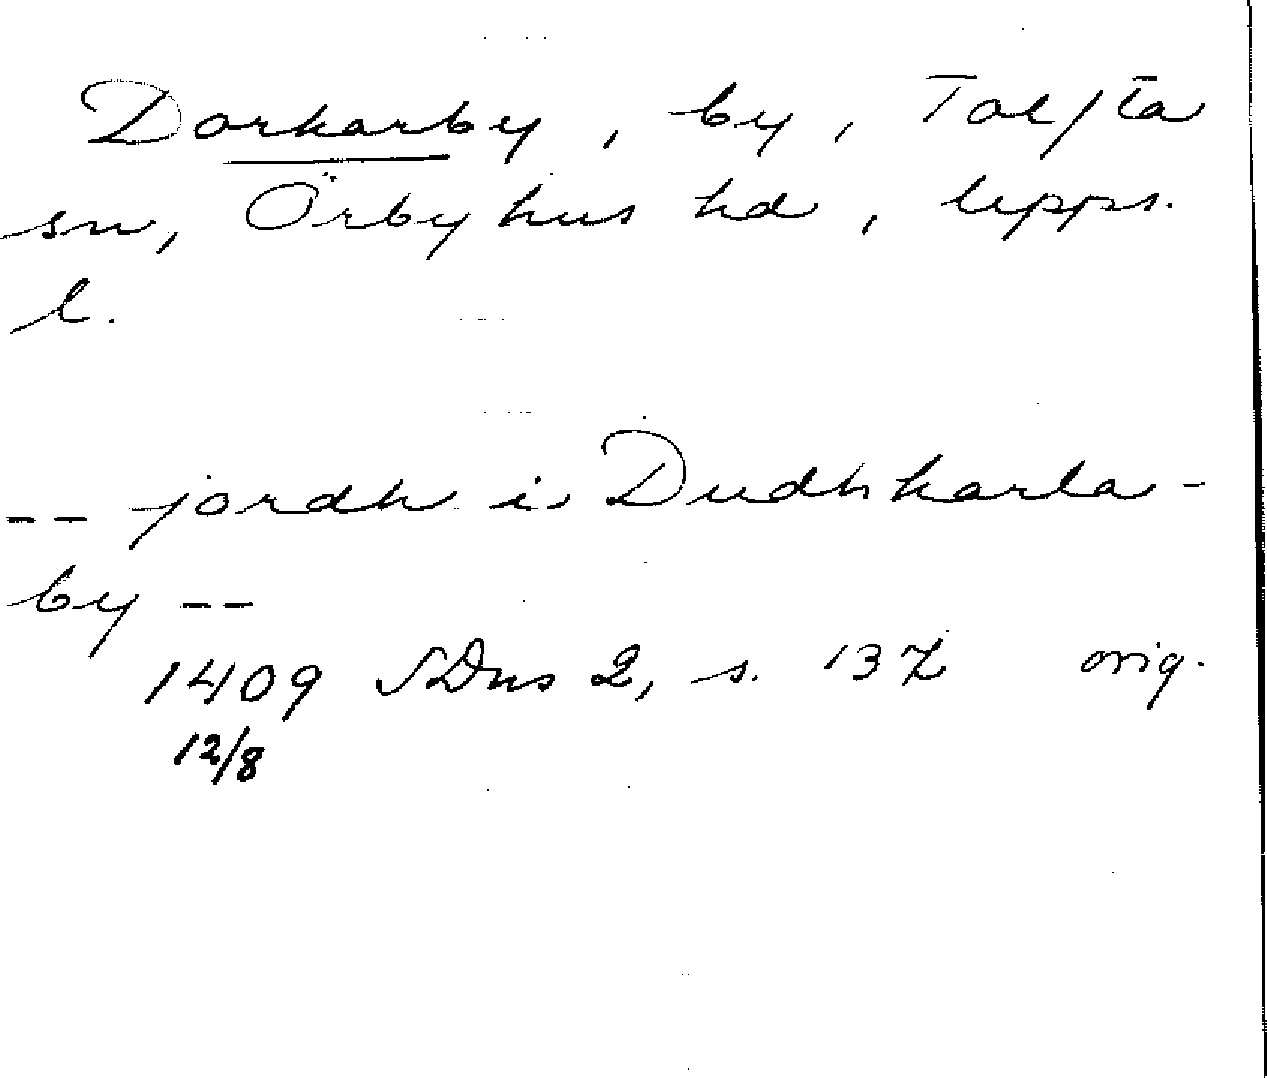 Dorkarby, by, Tolfta
sn, Örbyhus hd, Upps.
l.
-- jordh i Dudhkarla-
by --
1409 SDns 2, s. 137 orig.
12/8